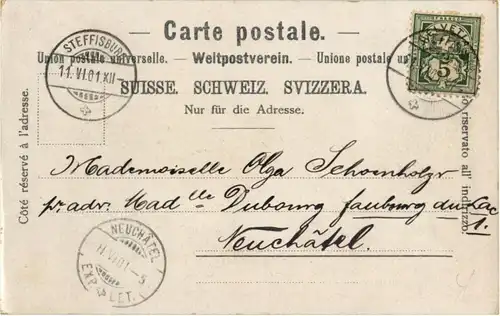 — Carte postale. —
Union postale universelle. — Weltpostverein. — Unione postale
SUISSE. SCHWEIZ. SVIZZERA.
Nur für die Adresse.
Côté réservé à l'adresse.
riservato all' indirizzo.
STEFFISBURG
11. VI. 01. XII
HELVETIA
5
Mademoiselle Olga Schoenholzr
pr adr. Madlle Dubourg faubourg du Lac
1.
Neuchâtel.
NEUCHATEL
11. VI. 01. - 5
EXP. LET.